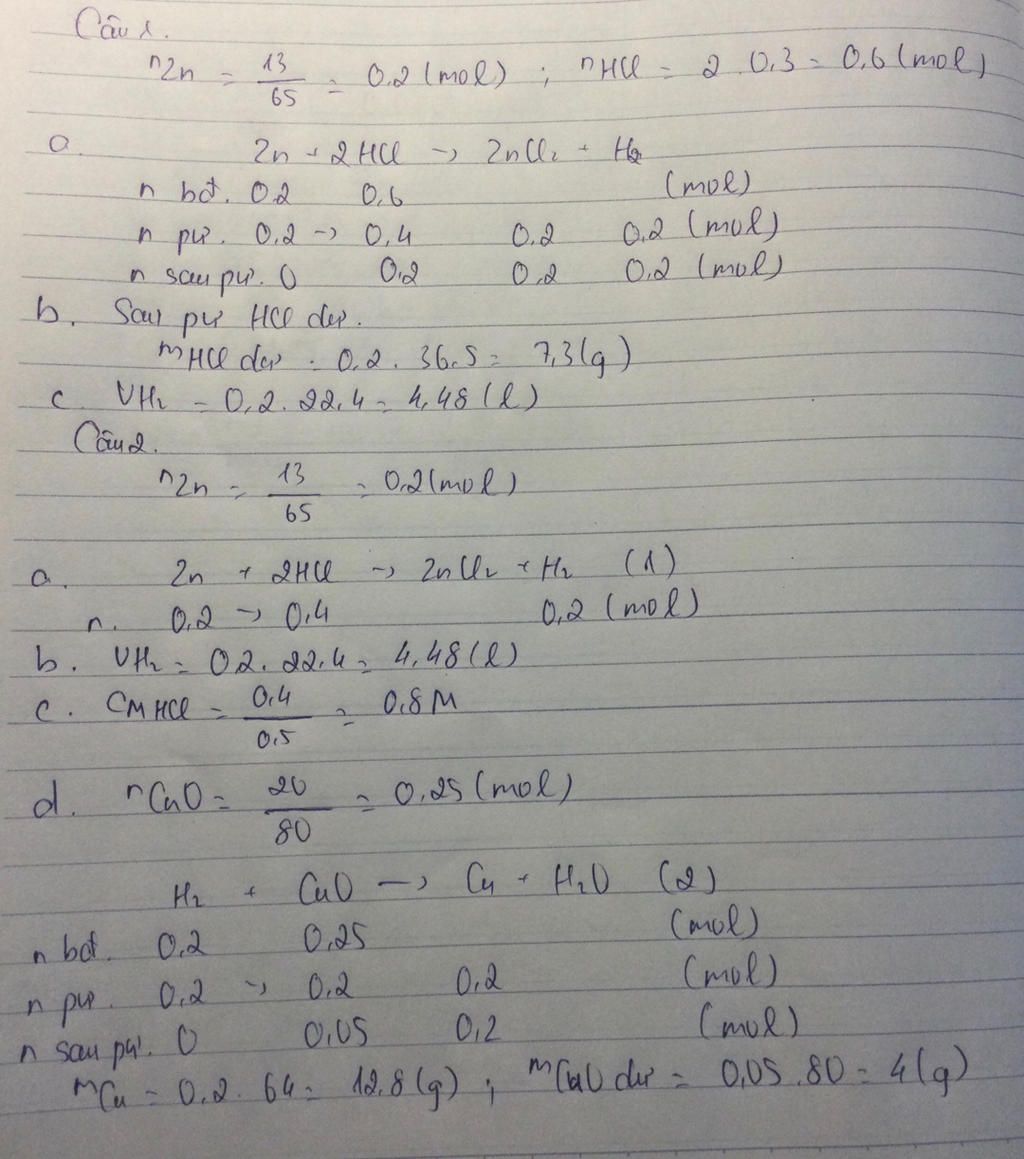 Câu 1.
nZn = 13/65 = 0.2 (mol) ; nHCl = 2.0,3 = 0,6 (mol)
a. Zn + 2HCl → ZnCl₂ + H₂
n bđ. 0.2 0,6 (mol)
n pư. 0.2 → 0.4 0.2 0.2 (mol)
n sau pư. 0 0.2 0.2 0.2 (mol)
b. Sau pư HCl dư.
mHCl dư = 0.2.36.5 = 7,3 (g)
c. VH₂ = 0,2.22,4 = 4,48 (l)
Câu 2.
nZn = 13/65 = 0.2 (mol)
a. Zn + 2HCl → ZnCl₂ + H₂ (1)
n. 0.2 → 0.4 0,2 (mol)
b. VH₂ = 0.2.22.4 = 4,48 (l)
c. CM HCl = 0.4/0.5 = 0,8M
d. nCuO = 20/80 = 0,25 (mol)
H₂ + CuO → Cu + H₂O (2)
n bđ. 0,2 0,25 (mol)
n pư. 0,2 → 0,2 0,2 (mol)
n sau pư. 0 0,05 0,2 (mol)
mCu = 0,2.64 = 12,8 (g) ; mCuO dư = 0,05.80 = 4 (g)